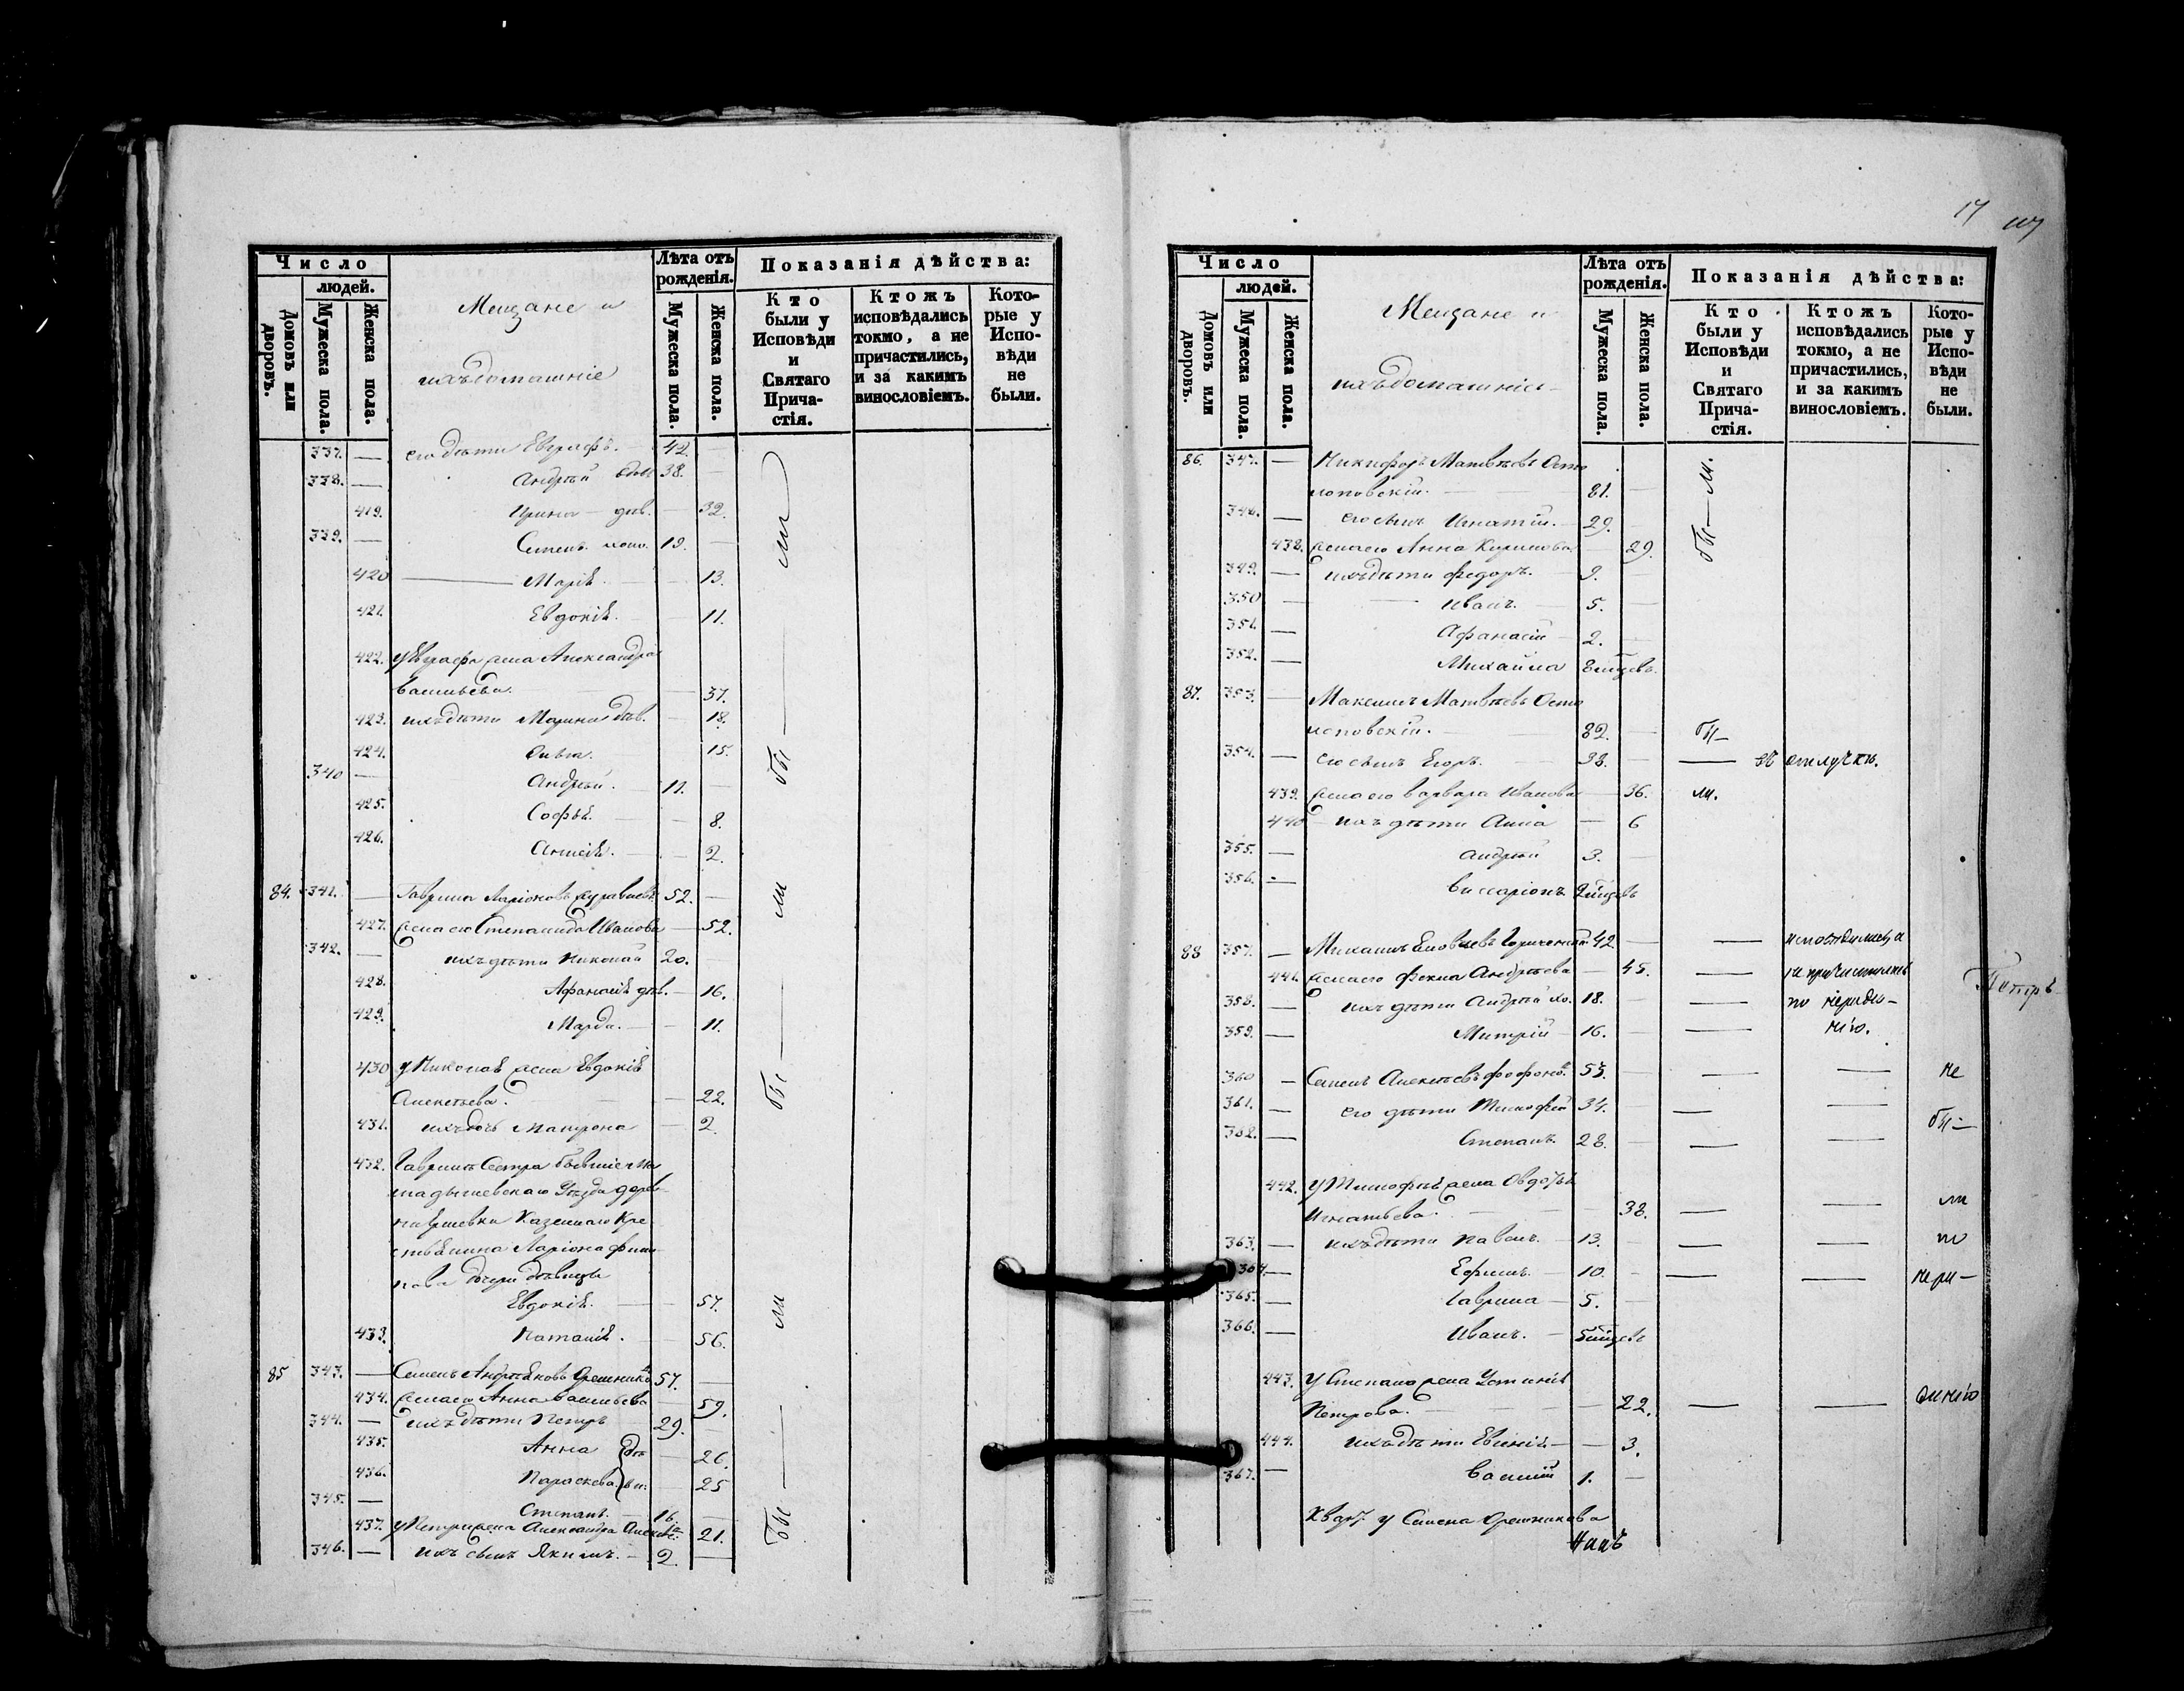 Число
людей.
Домовъ или дворовъ.
Мужеска пола.
Женска пола.
Мещане и
ихъ домашніе
Лѣта отъ рожденія.
Мужеска пола.
Женска пола.
Показанія дѣйства:
Кто были у Исповѣди и Святаго Прича-стія.
Ктожъ исповѣдались токмо, а не причастились, и за какимъ винословіемъ.
Кото-рые у Испо-вѣди не были.
337. — его дѣти Евграфъ. — 42. —
338. — Андрей вдов 38. —
419. Ирина — дѣв. — 32.
339. — Семенъ холо. 19. —
420 — Марія. — 13.
421. Евдокія. — 11.
422. У Евграфа жена Александра
Васильева. — 37.
423. ихъ дѣти Марина дѣв. — 18.
424. 15.
340 — Андрей. 11. —
425. Софья. — 8.
426. Анисія. — 2.
84. 341. — Гаврила Ларіоновъ Журавлевъ 52. —
427. жена его Степанида Иванова — 52.
342. — ихъ дѣти Николай 20. —
428. Афанасія дѣв. — 16.
429. Марфа. — 11.
430 У Николая жена Евдокія
Алексѣева. — 22.
431. ихъ дочь Матрона — 2.
432. Гаврилы Сестра бывшіе Ма
мадышевскаго Уѣзда дерев
Казеннаго Кре
стьянина Ларіона Фили
пова дочери дѣвицы
Евдокія. — 57.
433. Наталія. — 56.
85 343. — Семенъ Андреяновъ Орешнико 57. —
434. жена его Анна Васильева — 59.
344. — ихъ дѣти Петръ — 29. —
435. Анна дѣ — 26.
436. Параскева ви: — 25
345. — Степанъ. — 16. —
437. У Петра жена Александра Алексѣе: 21.
346. — ихъ сынъ Якимъ. — 2. —
бы — ли
бы — ли
бы — ли
17
Число
людей.
Домовъ или дворовъ.
Мужеска пола.
Женска пола.
Мещане и
ихъ домашніе
Лѣта отъ рожденія.
Мужеска пола.
Женска пола.
Показанія дѣйства:
Кто были у Исповѣди и Святаго Прича-стія.
Ктожъ исповѣдались токмо, а не причастились, и за какимъ винословіемъ.
Кото-рые у Испо-вѣди не были.
86. 347. — Никифоръ Матвѣевъ Осто
лоповскій. — 81. —
348. — его сынъ Игнатій. — 29. —
438. жена его Анна Кирилова — 29.
349. — ихъ дѣти Федоръ. — 9. —
350 — Иванъ. — 5. —
351. — Афанасій — 2. —
352. — Михайла 8 мѣсцевъ.
бы — ли.
87. 353. — Максимъ Матвѣевъ Осто
лоповскій. — 82. — бы —
354. — его сынъ Егоръ. — 38. — — въ отлучкѣ.
439. жена его Варвара Иванова — 36. ли.
440 — ихъ дѣти Анна — 6
355. — Андрей 3. —
356. — Виссаріонъ 2 мѣсцевъ
88 357. — Михаилъ 42. — — исповѣдались а
441. жена его Фекла Андрѣева — 45. — не причастились
358. — ихъ дѣти Андрей хо. 18. — — по нераде—
359. — Митрій — 16. — — нію.
Петръ
360 — Семенъ Алексѣевъ Фофонов. 55. — — — не
361. — его дѣти Тимофей 34. — — —
362. — Степанъ. 28. — — — бы —
442. У Тимофея жена Овдотья
Игнатьева. — 38. — — ли
363. — ихъ дѣти Павелъ. — 13. — — — по
364. — Ефимъ. — 10. — — — нера—
365. — Гаврила — 5. —
366. — Иванъ. — 5 мѣсцевъ
443. У Степана жена Устинія
Петрова. — 22. — — дѣнію
444. ихъ дѣти Евгенія — — 3.
367. — Василій 1. —
Кварт. у Семена Орешникова